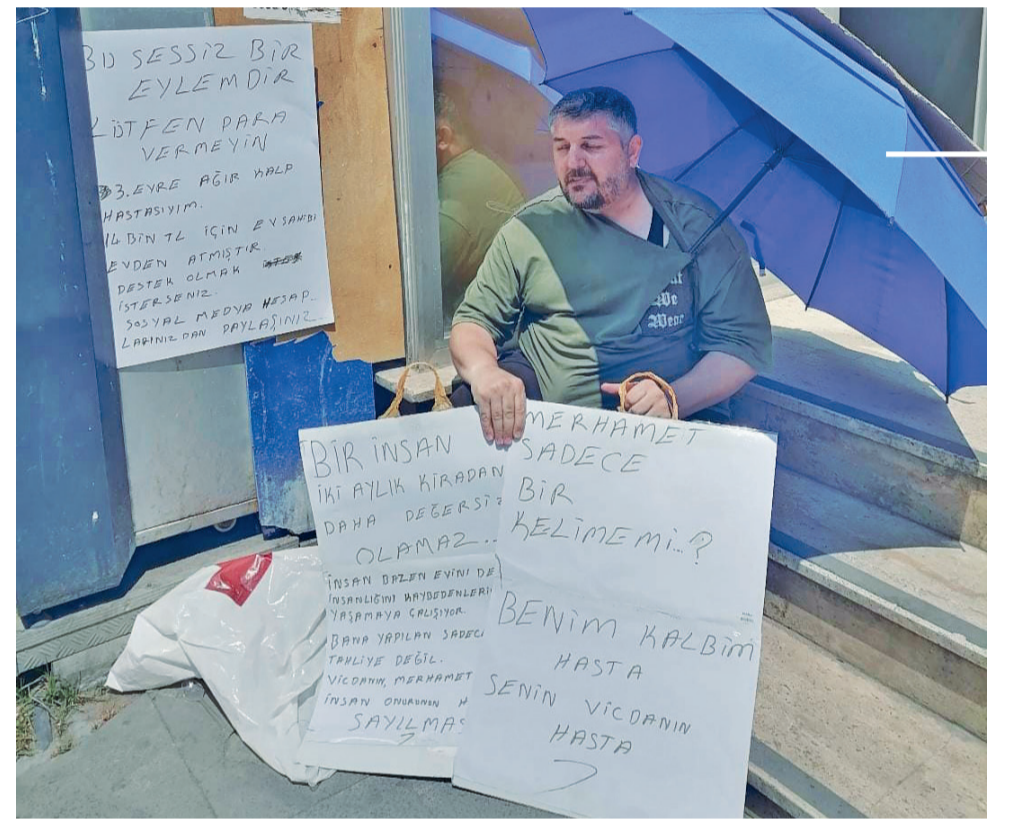 BU SESSİZ BİR
EYLEMDİR
LÜTFEN PARA
VERMEYİN
3. EVRE AĞIR KALP
HASTASIYIM.
14 BİN TL İÇİN EV SAHİBİ
EVDEN ATMIŞTIR.
DESTEK OLMAK
İSTERSENİZ.
SOSYAL MEDYA HESAP_
LARINIZDAN PAYLAŞINIZ..
We
Wear
BİR İNSAN
İKİ AYLIK KİRADAN
DAHA DEĞERSİZ
OLAMAZ...
İNSAN BAZEN EVİNİ DE
İNSANLIĞINI KAYBEDENLERİ
YAŞAMAYA ÇALIŞIYOR.
BANA YAPILAN SADECE
TAHLİYE DEĞİL.
VİCDANIN, MERHAMET
İNSAN ONURUNUN H
SAYILMAS
MERHAMET
SADECE
BİR
KELİMEMİ...?
BENİM KALBİM
HASTA
SENİN VİCDANIN
HASTA